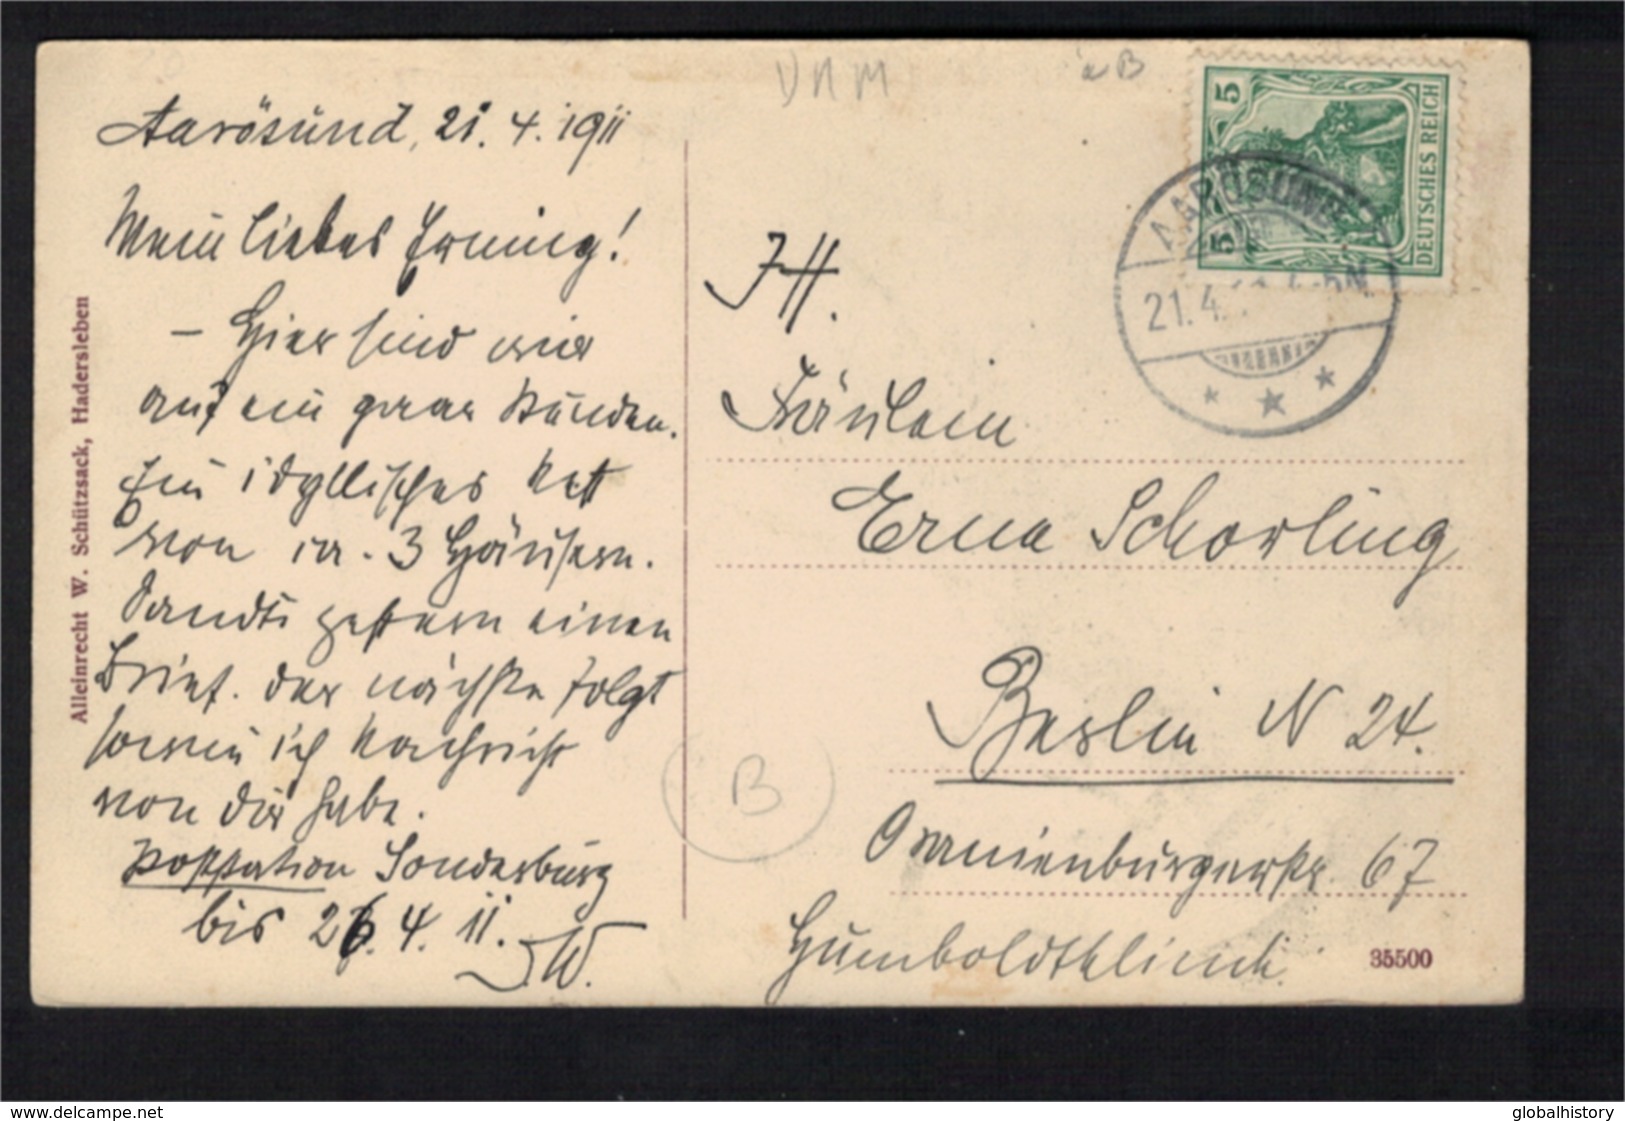 Aarösund, 21.4.1911
Mein liebes Erning!
– Hier sind wir
auf ein paar Stunden.
Ein idyllisches Nest
von ca. 3 Häusern.
Sandte gestern einen
Brief. Der nächste folgt
sowie ich Nachricht
von dir habe.
Poststation Sonderburg
bis 26.4.11.
W.
Alleinrecht W. Schützsack, Hadersleben
aB
5
5
DEUTSCHES REICH
AAROSUND
21.4.
5-6N.
Fräulein
Erna Schorling
Berlin N 24.
Oranienburgerstr. 67
Humboldtklinik
B
35500
www.delcampe.net
globalhistory